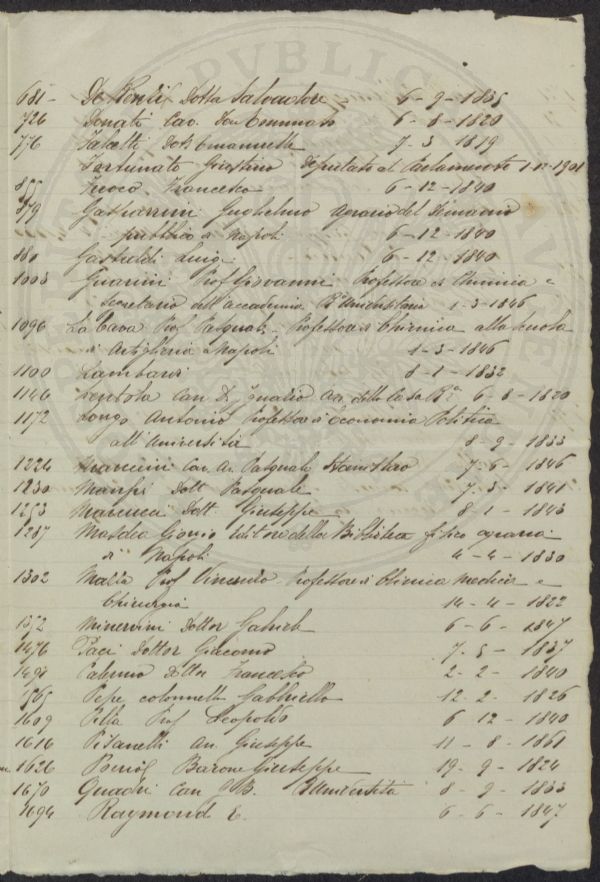 681 - De Renzis Dotto Salvadore 6 - 9 - 1835
726 Donati Cav. Don Tommaso 6 - 8 - 1820
776 Falcetti Dott Emanuelle 7 - 3 1819
Fortunato Giustino Deputato al Parlamento 1 - 12 - 1901
Fuoco Francesco 6 - 12 - 1840
879 Gasparrini Guglielmo agrario del Demanio
pubblico a Napoli 6 - 12 - 1840
880 Gastaldi Luigi 6 - 12 - 1840
1003 Guarini Prof Giovanni Professore di Chimica e
Secretario dell'Accademia 1 - 3 - 1846
1096 La Cava Prof Pasquale Professore di Chimica alla Scuola
di Artiglieria a Napoli 1 - 3 - 1846
1100 Lambardi 8 - 1 - 1832
1146 Can. D. Ignazio 6 - 8 - 1820
1172 Longo Antonio Professore di Economia Politica
all'Università 8 - 9 - 1833
1224 Mancini Cav. Av. Pasquale Stanislao 7 - 6 - 1846
1230 Manfrè Dott Pasquale 7 - 3 - 1841
1253 Marcucci Dott Giuseppe 8 - 1 - 1843
1287 Masdea Giorgio Editore della Biblioteca fisico agraria
di Napoli 4 - 4 - 1830
1302 Prof Vincenzo Professore di Chimica Medica e
Chirurgia 14 - 4 - 1822
1372 Minervini Dottor Gabriele 6 - 6 - 1847
1476 Paci Dottor Giacomo 7 - 5 - 1837
1491 Palermo Dottor Francesco 2 - 2 - 1840
1565 Pepe colonnello Gabbriello 12 - 2 - 1826
1609 Pilla Prof Leopoldo 6 12 - 1840
1616 Pisanelli Av. Giuseppe 11 - 8 - 1861
1626 Poerio Barone Giuseppe 19 - 9 - 1824
1670 Quadri Can G. B. Università 8 - 9 - 1833
1694 Raymond E. 6 - 6 - 1847